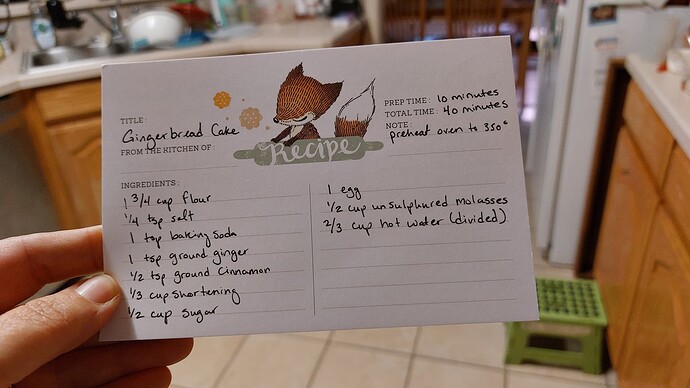 TITLE:
Gingerbread Cake
FROM THE KITCHEN OF:
Recipe
PREP TIME: 10 minutes
TOTAL TIME: 40 minutes
NOTE:
preheat oven to 350°
INGREDIENTS:
1 3/4 cup flour
1/4 tsp salt
1 tsp baking soda
1 tsp ground ginger
1/2 tsp ground cinnamon
1/3 cup shortening
1/2 cup sugar
1 egg
1/2 cup unsulphured molasses
2/3 cup hot water (divided)